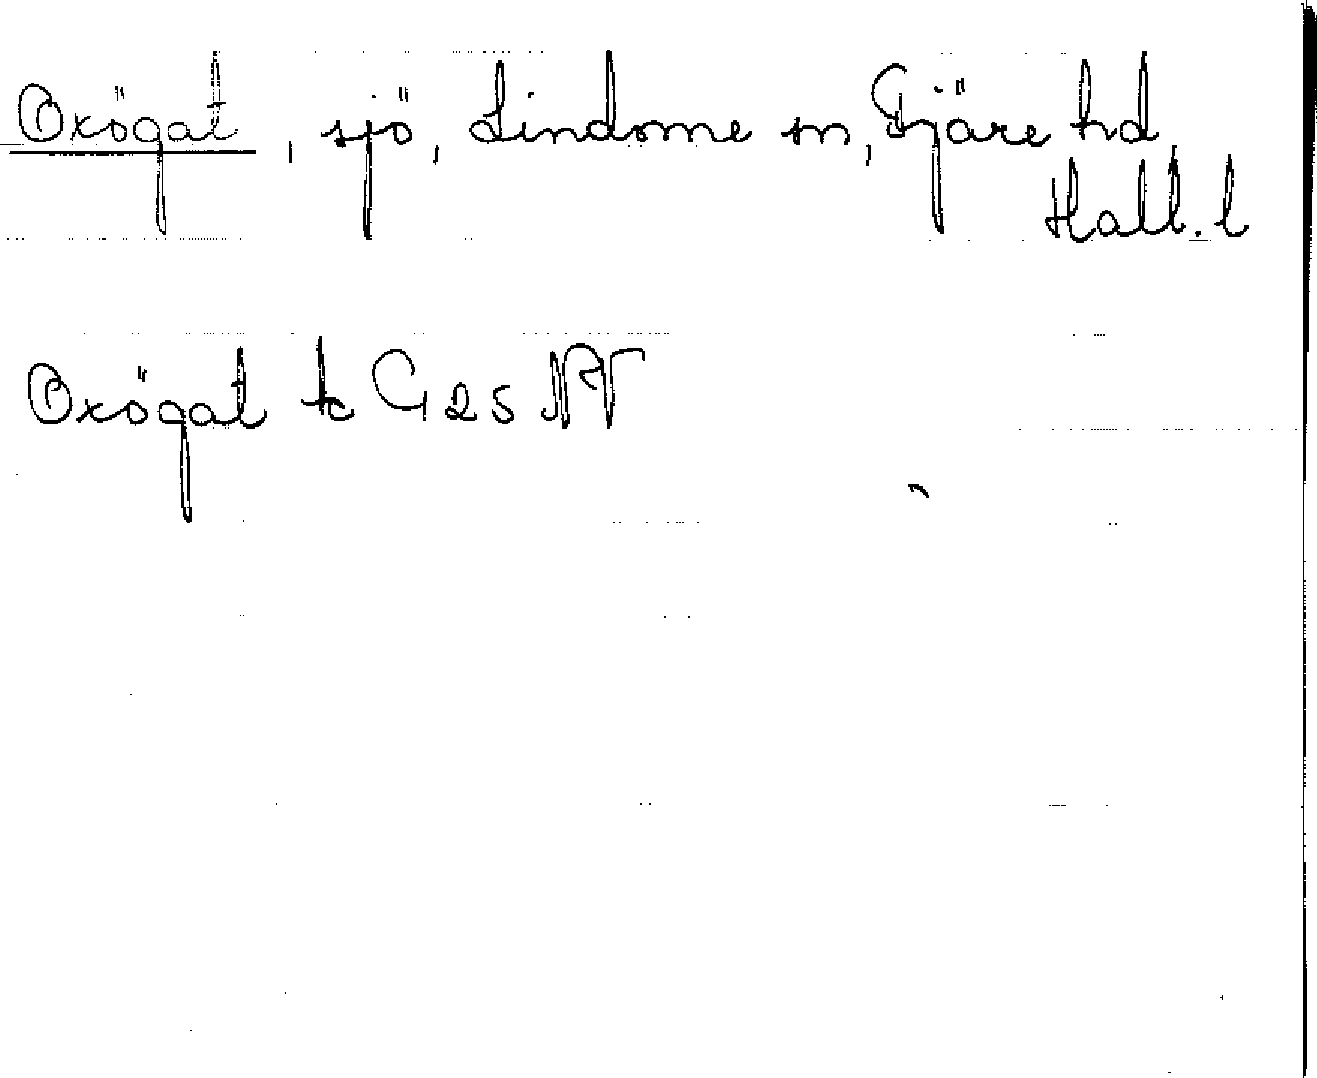 Oxögat, sjö, Lindome sn, Fjäre hd
Hall. l
Oxögat tc G25 NV